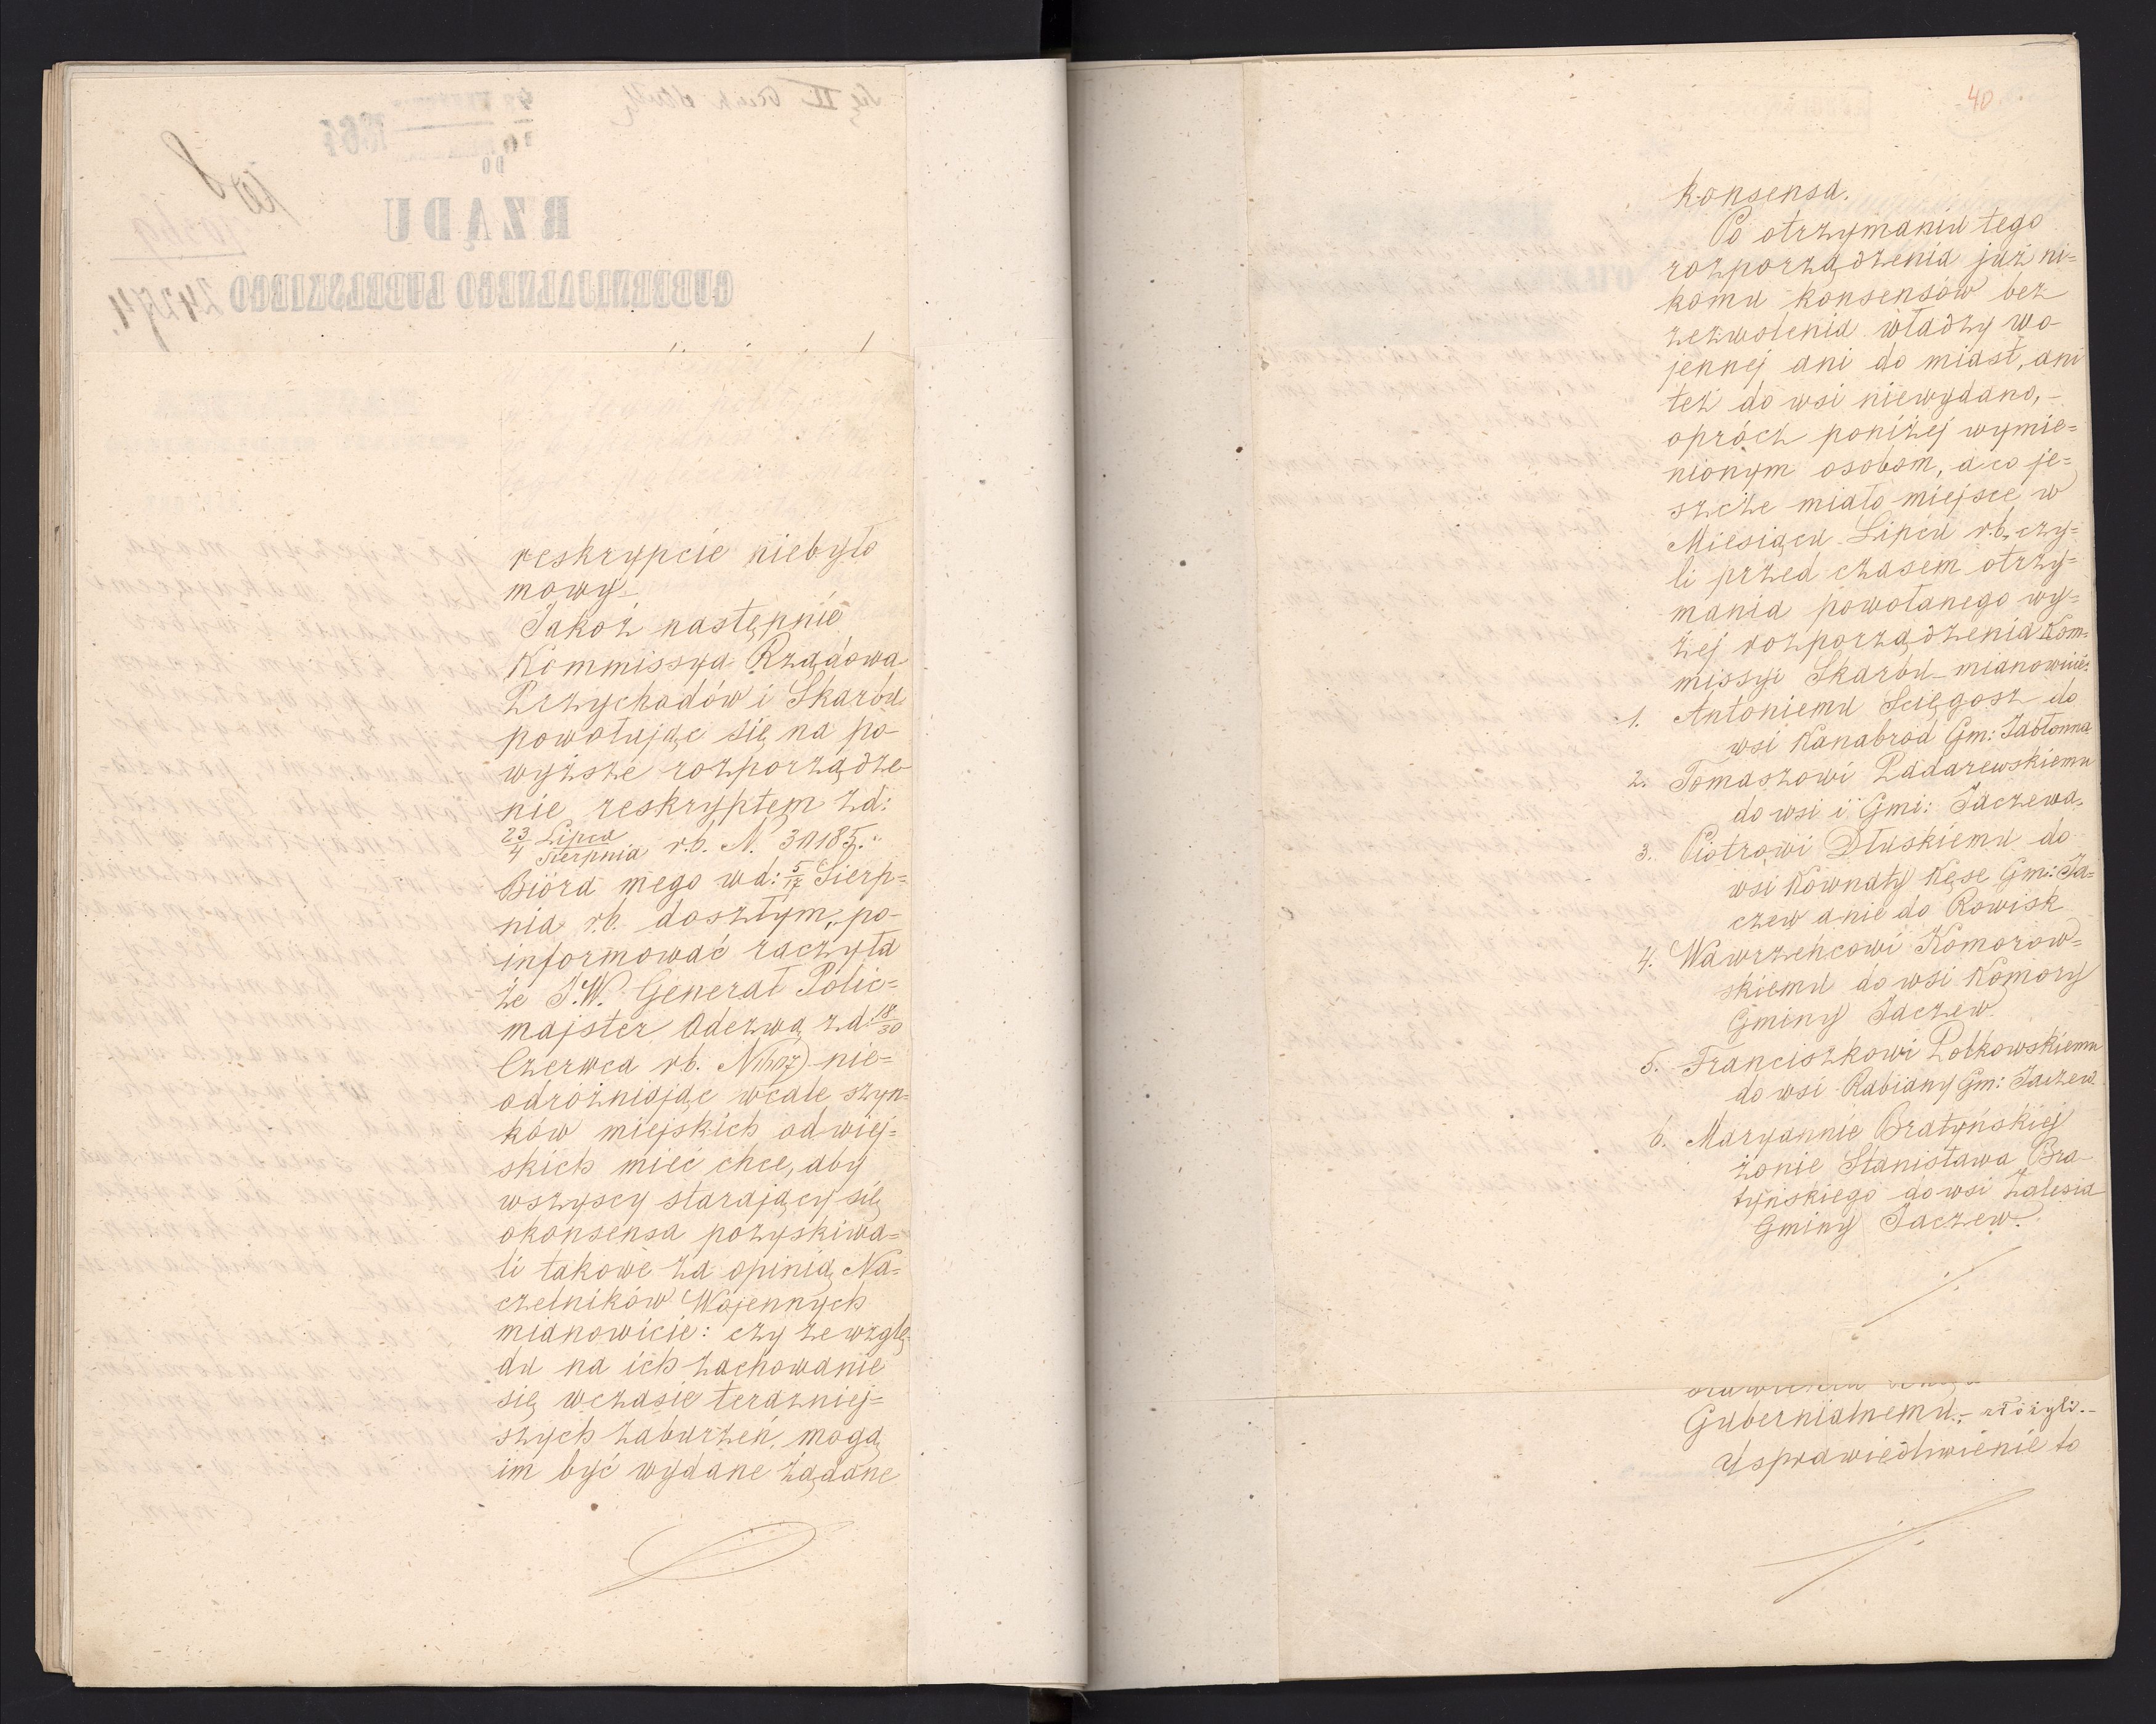 reskrypcie niebyło
mowy.–
Jakoż następnie
Kommissya Rządowa
Przychodów i Skarbu
powołując się na po-
wyższe rozporządze-
nie reskryptem z d:
23/4 Lipca/Sierpnia r.b. N. 30185.
Bióra mego w d: 5/17 Sierp=
nia r.b. doszłym, po-
informować raczyła
że J.W. Generał Polic=
majster Odezwą z d: 18/30
Czerwca r.b. nie=
odróżniając wcale szyn=
ków miejskich od wiej=
skich mieć chce, aby
wszyscy starający się
o konsensa pozyskiwa=
li takowe za opinią Na=
czelników Wojennych
mianowicie: czy ze wzglę=
du na ich zachowanie
się w czasie teraźniej=
szych zaburzeń, mogą
im być wydane żądane
40
konsensa.
Po otrzymaniu tego
rozporządzenia już ni=
komu konsensów bez
zezwolenia władzy wo-
jennej ani do miast, ani
też do wsi niewydano, –
oprócz poniżej wymie=
nionym osobom, a co je=
szcze miało miejsce w
Miesiącu Lipcu r.b. czy=
li przed czasem otrzy=
mania powołanego wy=
żej rozporządzenia Kom=
missyi Skarbu – mianowicie:
1. Antoniemu Sciegosz do
wsi Kanabrod Gm: Jabłonna
2. Tomaszowi Zadarewskiemu
do wsi i Gmi: Jaczewa.
3. Piotrowi Dłuskiemu do
wsi Kownaty Kęse Gm: Ja=
czew a nie do Rowisk
4. Wawrzeńcowi Komorow=
skiemu do wsi Komory
Gminy Jaczew
5. Franciszkowi Zołkowskiemu
do wsi Rabiany Gm: Jaczew
6. Maryannie Bratyńskiej
żonie Stanisława Bra-
tyńskiego do wsi Zalesia
Gminy Jaczew.
Gubernialnemu – złożyli.–
Usprawiedliwienie to